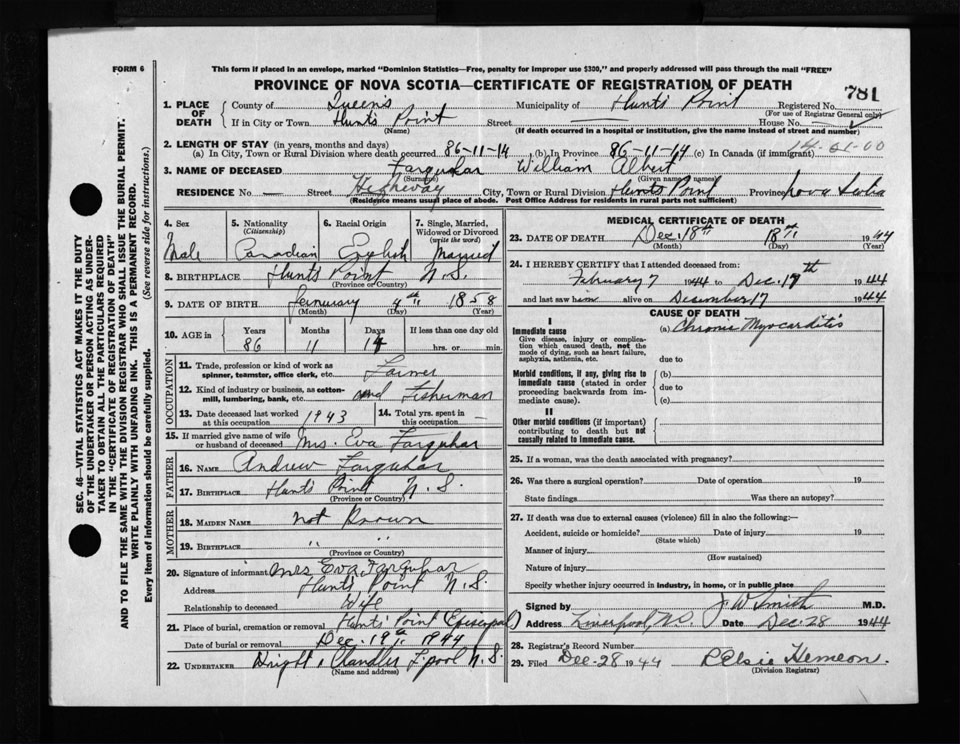 FORM 6
This form if placed in an envelope, marked "Dominion Statistics—Free, penalty for improper use $300," and properly addressed will pass through the mail "FREE"
PROVINCE OF NOVA SCOTIA—CERTIFICATE OF REGISTRATION OF DEATH
781
1. PLACE OF DEATH
County of Queens Municipality of Hunts Point Registered No.
(For use of Registrar General only)
If in City or Town Hunt's Point Street — House No. —
(Name) (If death occurred in a hospital or institution, give the name instead of street and number)
2. LENGTH OF STAY (in years, months and days)
(a) In City, Town or Rural Division where death occurred 86-11-14 (b) In Province 86-11-14 (c) In Canada (if immigrant)
3. NAME OF DECEASED Farquhar William Albert
(Surname) (Given name or names)
RESIDENCE No. — Street Highway City, Town or Rural Division Hunts Point Province Nova Scotia
(Residence means usual place of abode. Post Office Address for residents in rural parts not sufficient)
4. Sex 5. Nationality (Citizenship) 6. Racial Origin 7. Single, Married, Widowed or Divorced (write the word)
Male Canadian English Married
8. BIRTHPLACE Hunts Point N.S.
(Province or Country)
9. DATE OF BIRTH January 4th 1858
(Month) (Day) (Year)
10. AGE in Years Months Days If less than one day old
86 11 14 hrs. or min.
OCCUPATION
11. Trade, profession or kind of work as spinner, teamster, office clerk, etc. Farmer
12. Kind of industry or business, as cotton-mill, lumbering, bank, etc. and Fisherman
13. Date deceased last worked at this occupation 1943 14. Total yrs. spent in this occupation —
15. If married give name of wife or husband of deceased Mrs. Eva Farquhar
FATHER
16. NAME Andrew Farquhar
17. BIRTHPLACE Hunts Point N.S.
(Province or Country)
MOTHER
18. MAIDEN NAME not Known
19. BIRTHPLACE " "
(Province or Country)
20. Signature of informant Mrs Eva Farquhar
Address Hunts Point N.S.
Relationship to deceased Wife
21. Place of burial, cremation or removal Hunts Point Episcopal
Date of burial or removal Dec. 19th 1944
22. UNDERTAKER Wright & Chandler L'pool N.S.
(Name and address)
MEDICAL CERTIFICATE OF DEATH
23. DATE OF DEATH Dec. 18th 18th 1944
(Month) (Day) (Year)
24. I HEREBY CERTIFY that I attended deceased from:
February 7 1944 to Dec. 17th 1944
and last saw him alive on December 17 1944
CAUSE OF DEATH
I
Immediate cause (a) Chronic Myocarditis
Give disease, injury or complication which caused death, not the mode of dying, such as heart failure, asphyxia, asthenia, etc. due to
Morbid conditions, if any, giving rise to immediate cause (stated in order proceeding backwards from immediate cause). (b)
due to
(c)
II
Other morbid conditions (if important) contributing to death but not causally related to immediate cause.
25. If a woman, was the death associated with pregnancy?
26. Was there a surgical operation? Date of operation 19
State findings Was there an autopsy?
27. If death was due to external causes (violence) fill in also the following:—
Accident, suicide or homicide? Date of injury 19
(State which)
Manner of injury
(How sustained)
Nature of injury
Specify whether injury occurred in industry, in home, or in public place
Signed by J W Smith M.D.
Address Liverpool, N.S. Date Dec. 28 1944
28. Registrar's Record Number
29. Filed Dec-28 1944 Elsie Hemeon.
(Division Registrar)
SEC. 46—VITAL STATISTICS ACT MAKES IT THE DUTY
OF THE UNDERTAKER OR PERSON ACTING AS UNDER-
TAKER TO OBTAIN ALL THE PARTICULARS REQUIRED
IN THE "CERTIFICATE OF REGISTRATION OF DEATH"
AND TO FILE THE SAME WITH THE DIVISION REGISTRAR WHO SHALL ISSUE THE BURIAL PERMIT.
WRITE PLAINLY WITH UNFADING INK. THIS IS A PERMANENT RECORD.
Every item of information should be carefully supplied. (See reverse side for instructions.)